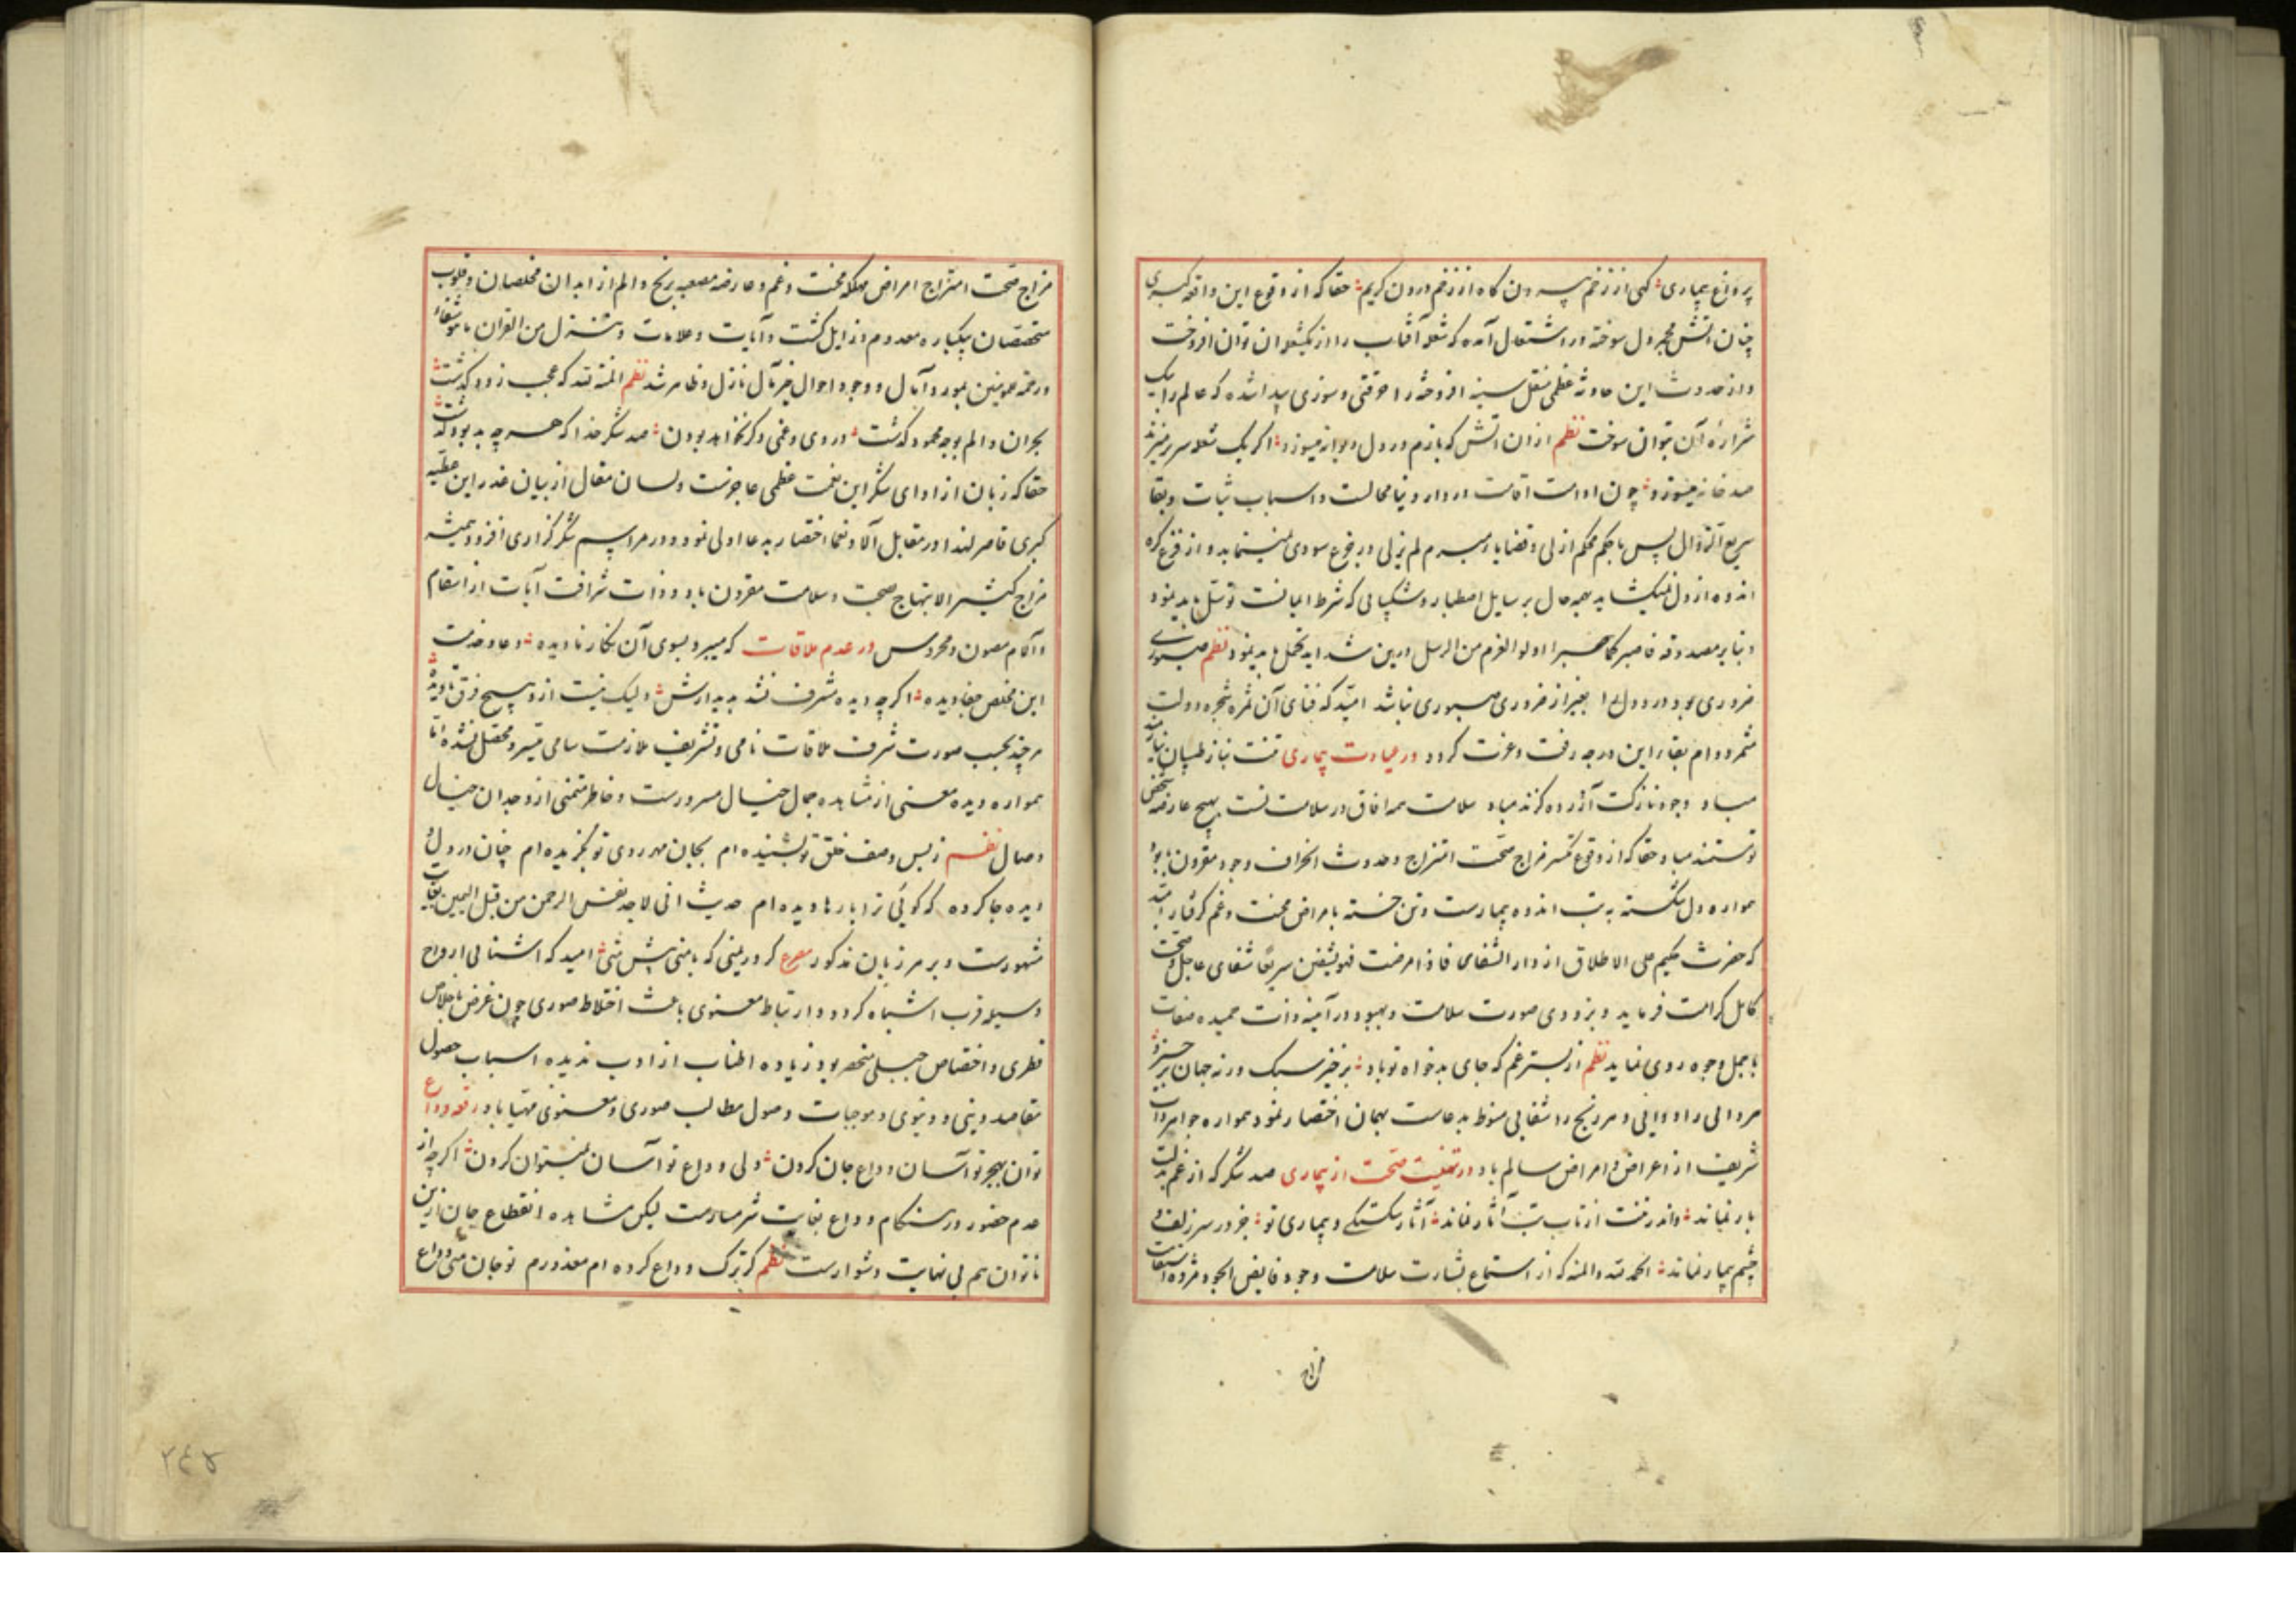 پر داغ بیماری گهی از زخم بیرون گاه از زخم درون گریم حقا که از وقوع این واقعه کبری
چنان اتش مجمر دل سوخته در اشتعال آمده که شعلو آفتاب را از یکشعلو ان توان افروخت
و از حدوث این حادثه عظمی منقل سینه افروخته را حرقتی و سوزی پیدا شده که عالم را بیک
شرارهٔ آن بتوان سوخت نظم ازان اتش که بازم در دل دیوانه میسوزد اکر یک شعله سر بر میزند
صد خانه میسوزد چون ادامت اقامت در دار دنیا محالست و اسباب ثبات و بقا
سریع الزوال پس با حکم محکم ازلی و قضایاء مبرم لم یزلی در فوع سودی نمینماید و از فزع کره
اندوه از دل نمیکشاید بهمه حال بر سایل اصطبار و شکیبائی که شرط ایمانست توسّل باید نمود
و بنا بر مصدوقه فاصبر کما صبر اولوا العزم من الرسل درین شداید تحمّل باید نمود نظم صبوری
ضروری بود در دول بغیر از ضروری صبوری نباشد امیّد که فنای آن ثمره شجره دولت
مثمر دوام بقاء این درجه رفت و عزت کردد در عیادت بیماری تنت بناز طبیبان نیازمند
مباد وجود نازکت آزرده کزند مباد سلامت همه افاق در سلامت تست بهیچ عارضه شخص
تو مستمند مباد حقا که از وقوع تکسّر مزاج صحّت امتزاج و حدوث انحراف وجود مقرون بجود
همواره دل شکسته به تب اندوه بیمارست و تن خسته بامراض محنت و غم کرفتار امیّد
که حضرت حکیم علی الاطلاق از دار الشفای فاذا مرضت فهو یشفین سریعًا شفای عاجل و صحّت
کامل کرامت فرماید و بزودی صورت سلامت و بهبود در آینه ذات حمیده صفات
با جمل وجوه روی نماید نظم از بستر غم که جای بدخواه تو باد برخیز سبک ورنه جهان برخیزد
هر دائی را دوائی و هر رنج را شفائی منوط بدعاست بهمان اختصار نمود همواره جواهر ذات
شریف از اعراض و امراض سالم باد در تهنیت صحّت از بیماری صد شکر که از غم بدلت
بار نماند و اندر تنت از تاب تب آثار نماند آثار شکستگی و بیماری تو جز در سر زلف و
چشم بیمار نماند الحمد لله و المنه که از استماع بشارت سلامت وجود فایض الجود و مژدهٔ استقامت
مزاج
مزاج صحّت امتزاج امراض مهلکه محنت و غم و عارضه مصعبه رنج و الم از ابدان مخلصان و قلوب
متخصّصان بیکباره معدوم و زایل کشت و آیات و علامات و ننزل من القران ما هو شفاء
و رحمه للمومنین بمورد آمال و وجود احوال خیر مآل نازل و ظاهر شد نظم المنه لله که عجب زود کذشت
بحران و الم بوجه محمود کذشت دردی و غمی دکر نخواهد بودن صد شکر خدا که هر چه بد بود کذشت
حقا که زبان از ادای شکر این نعمت عظمی عاجزست و لسان مقال از بیان قدر این عطیّه
کبری قاصر لهذا در مقابل آلا و نعما اختصار بدعا اولی نمود و در مراسم شکر کزاری افزود همیشه
مزاج کثیر الابتهاج بصحت و سلامت مقرون باد و ذات شرافت آیات از اسقام
و آلام مصون و محروس در عدم ملاقات که میبرد بسوی آن نکار نادیده دعا و خدمت
این مخلص جفا دیده اکرچه دیده مشرف نشد بدیدارش ولیک نیست ازو هیچ فرق نادیده
هر چند بحسب صورت شرف ملاقات نامی و تشریف ملازمت سامی میّسر و محصّل نشده امّا
همواره دیده معنی از مشاهده جمال خیال مسرورست و خاطر متمنی از وجدان خیال
وصال نظم ز بس وصف خلق تو بشنیده ام بجان مهر روی تو بکزیده ام چنان در دل و
دیده جا کرده که کوئی ترا بارها دیده ام حدیث انی لاجد نفس الرحمن من قبل الیمن بغایت
مشهورست و بر هر زبان مذکور مصرع کر در یمنی که با منی پیش منی امید که اشنائی ارواح
وسیله قرب اشباه کردد و ارتباط معنوی باعث اختلاط صوری چون غرض باخلاص
فطری و اختصاص جبلی منحصر بود زیاده اطناب از ادب ندیده اسباب حصول
مقاصد دینی و دنیوی و موجبات وصول مطالب صوری و معنوی مهیّا باد رقعه وداع
توان بهجر تو آسان وداع جان کردن ولی وداع تو آسان نمیتوان کردن اکرچه از
عدم حضور در هنکام وداع بغایت شرمسارست لیکن مشاهده انقطاع جان ازین
ناتوان هم بی نهایت دشوارست نظم کر ترک وداع کرده ام معذورم تو جان منی وداع
۲۴۵